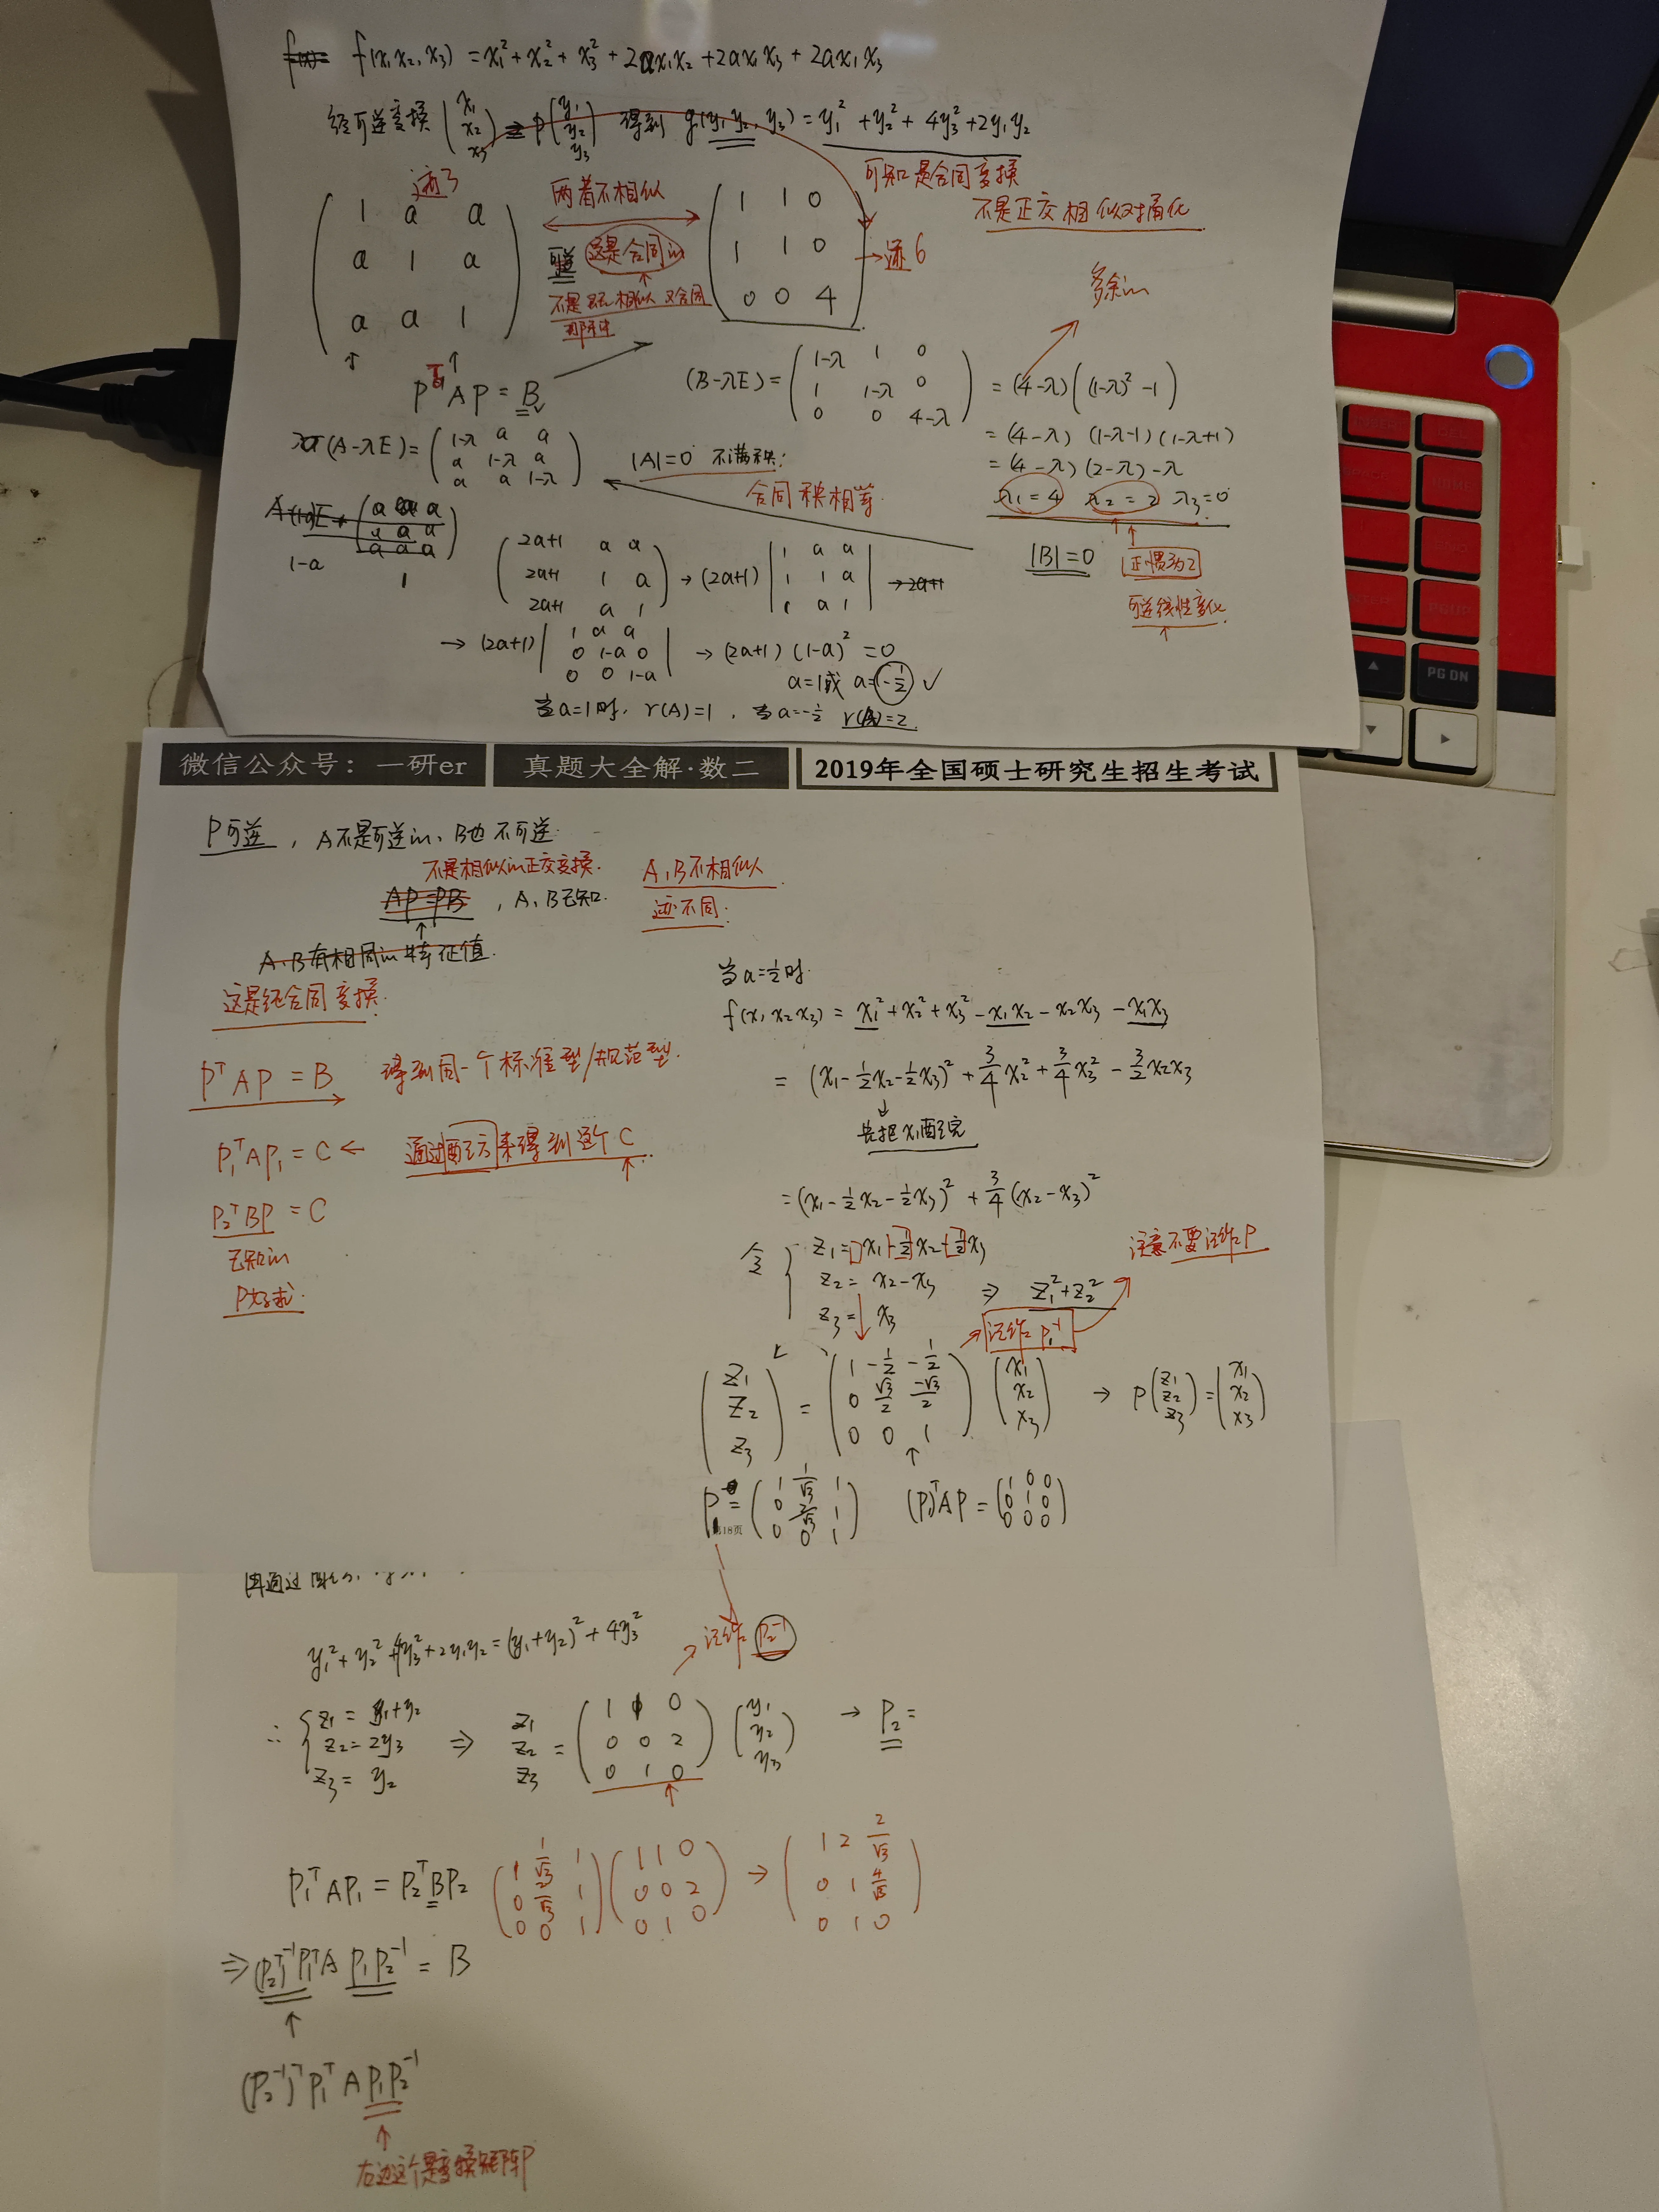 f(x₁,x₂,x₃) = x₁²+x₂²+x₃²+2ax₁x₂+2ax₁x₃+2ax₁x₃
经可逆变换 (x₁ x₂ x₃) = P (y₁ y₂ y₃) 得到 g(y₁,y₂,y₃) = y₁²+y₂²+4y₃²+2y₁y₂
可知是合同变换
不是正交相似对角化
迹3
两者不相似
可逆 这是合同的
1 a a
a 1 a
a a 1
1 1 0
1 1 0
0 0 4
→迹6
多余的
PᵀAP = B
(B-λE) = (1-λ 1 0
1 1-λ 0
0 0 4-λ) = (4-λ)((1-λ)²-1)
= (4-λ)(1-λ-1)(1-λ+1)
= (4-λ)(2-λ)-λ
λ₁=4 λ₂=2 λ₃=0
|B|=0
正惯为2
可逆线性变化
(A-λE) = (1-λ a a
a 1-λ a
a a 1-λ)
|A|=0 不满秩;
合同秩相等.
1-a
(2a+1 a a
2a+1 1 a
2a+1 a 1) → (2a+1) |1 a a
1 1 a
1 a 1| → 2a+1
→ (2a+1) |1 a a
0 1-a 0
0 0 1-a| → (2a+1)(1-a)²=0
a=1或 a=-½ ✓
当a=1时, r(A)=1, 当a=-½ r(A)=2.
微信公众号：一研er
真题大全解·数二
2019年全国硕士研究生招生考试
P可逆, A不是可逆的, B也不可逆.
不是相似的正交变换.
A,B不相似
AP=PB, A,B已知.
迹不同.
A,B有相同的特征值.
这是经合同变换.
PᵀAP = B 得到同一个标准型/规范型.
P₁ᵀAP₁ = C ← 通过配方来得到这个C
P₂ᵀBP = C
已知的
P好求.
当a=½时.
f(x₁x₂x₃) = x₁²+x₂²+x₃²-x₁x₂-x₂x₃-x₁x₃
= (x₁-½x₂-½x₃)²+¾x₂²+¾x₃²-3/2x₂x₃
先把x₁配完
= (x₁-½x₂-½x₃)²+¾(x₂-x₃)²
令 z₁= x₁-½x₂-½x₃
z₂= x₂-x₃ ⇒ z₁²+z₂²
z₃= x₃
注意不要记作P
记作P₁⁻¹
(z₁ z₂ z₃) = (1 -½ -½
0 √3/2 -√3/2
0 0 1) (x₁ x₂ x₃) → P(z₁ z₂ z₃) = (x₁ x₂ x₃)
P₁ = (1 1/√3 1
0 2/√3 1
0 0 1) (P₁)ᵀAP = (1 0 0
0 1 0
0 0 0)
18页
y₁²+y₂²+4y₃²+2y₁y₂=(y₁+y₂)²+4y₃²
记作 P₂⁻¹
∴ z₁ = y₁+y₂
z₂ = 2y₃
z₃ = y₂
⇒ z₁ z₂ z₃ = (1 1 0
0 0 2
0 1 0) (y₁ y₂ y₃) → P₂ =
P₁ᵀAP₁ = P₂ᵀBP₂
(1 1/√3 1
0 2/√3 1
0 0 1) (1 1 0
0 0 2
0 1 0) → (1 2 2/√3
0 1 4/√3
0 1 0)
⇒ (P₂ᵀ)⁻¹P₁ᵀA P₁P₂⁻¹ = B
(P₂⁻¹)ᵀP₁ᵀ A P₁P₂⁻¹
右边这个是变换矩阵P